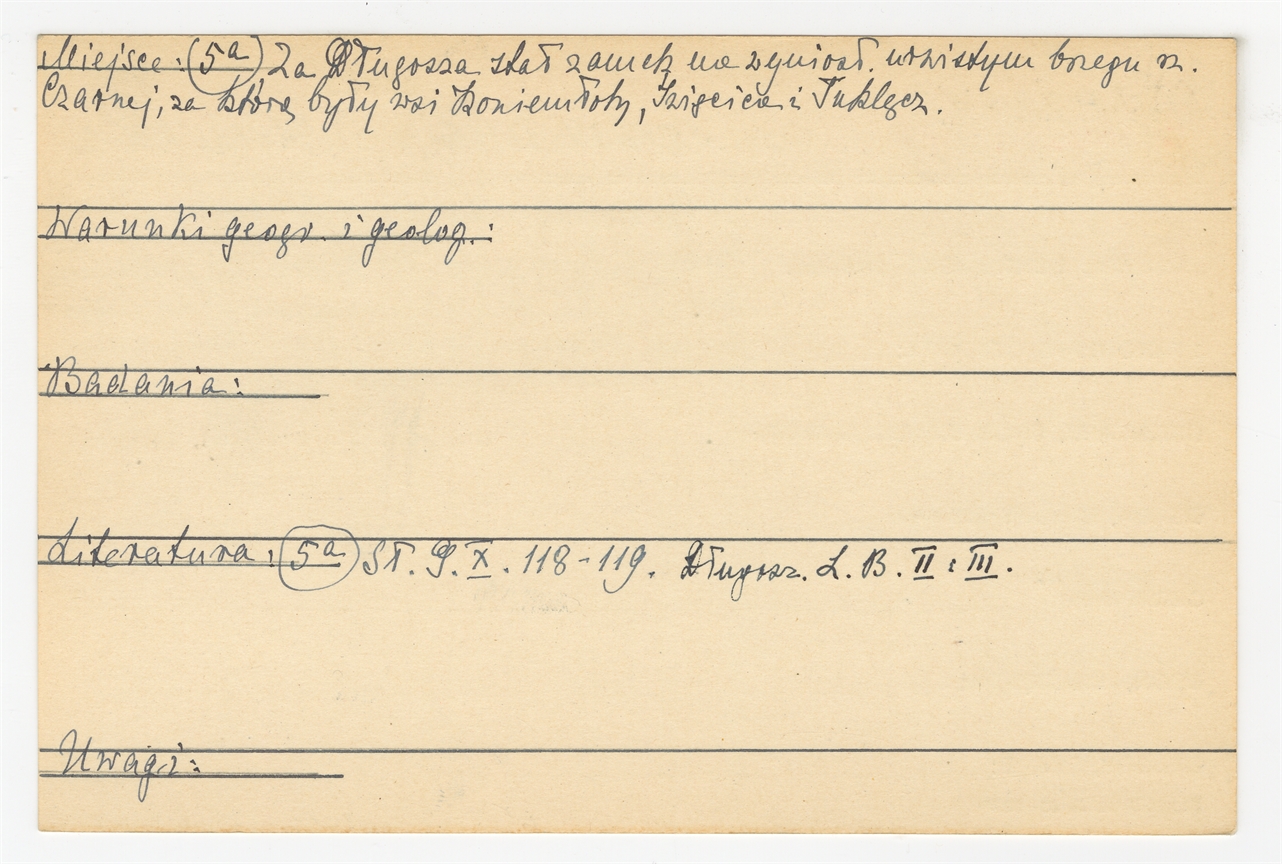 Miejsce: (5a) Za Długosza stał zamek na wyniosł. urwistym brzegu rz.
Czarnej, za którą były wsi Koniemłoty, i Tuklęcz.
Warunki geogr. i geolog.:
Badania:
Literatura: (5a) Sł. G. X. 118-119. Długosz. L. B. II i III.
Uwagi: